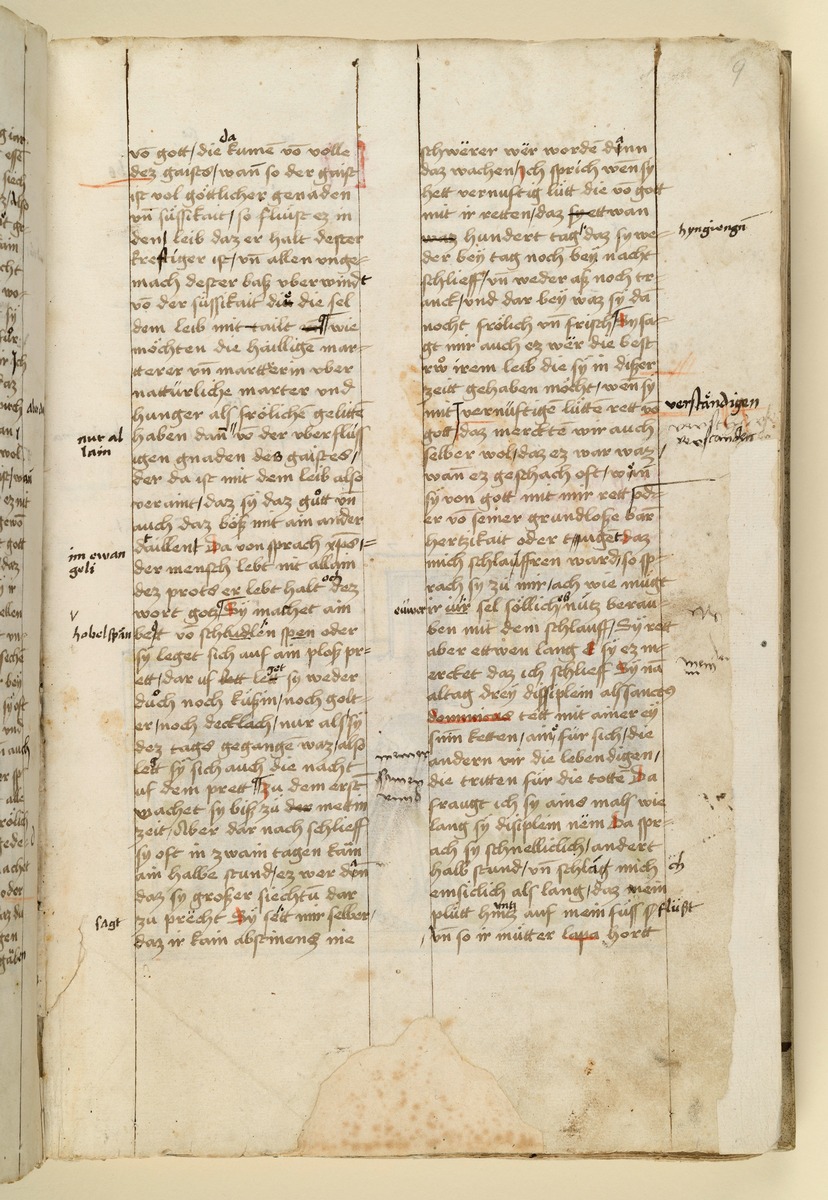 9
da
vō gott / die kumē vō volle
dez gaists / wan̄ so der gaist
ist vol göttlicher genaden
vn̄ süssikait / so fluist ez in
den leib daz er halt dester
kreftiger ist / vn̄ allen unge=
mach dester baß vberwindt
vō der süssikait die die sel
dem leib mit tailt wie
möchten die hailligen mar=
terer vn̄ martterin vber
nattürliche marter vnd
hunger als fröliche gelittē
haben dan̄ vō der vberflüss
igen gnaden des gaistes /
der da ist mit dem leib also
veraint / daz sÿ daz gůtt vn̄
auch daz böß mit ain ander
taillent Da von sprach xp̄s /=
der mensch lebt nit allain
dez prots er lebt halt och dez
wort gotz Sÿ machet ain
bett vō schlidlen spen oder
sÿ leget sich auf ain ploß pr=
ett / dar uf leget sÿ weder
důch noch küßin / noch golt=
er / noch decklach / nur als sÿ
dez tags gegangē waz / also
leit sÿ sich auch die nacht
uf dem prett zu dem erst
wachet sÿ biß zu der mettin
zeit / Aber dar nach schlieff
sÿ oft in zwain tagen kain
ain halbe stund / ez wer dan̄
daz sÿ großer siechtū dar
zu prēcht Sÿ seit mir selber /
daz ir kain abstinentz nie
nur al
lain
im ewan
geli
hobelspān
sagt
schwērer wēr worde dann
daz wachen / Ich sprich wen sÿ
hett vernuftig lütt die vō gott
mit ir retten / daz sÿ ettwan
hundert tag daz sÿ we=
der beÿ tag noch beÿ nacht
schlieff / vn̄ weder aß noch tr=
anck / vnd dar beÿ waz sÿ dā
nocht frölich vn̄ frisch / Sÿ sa=
gt mir auch ez wēr die best
rů irem leib die sÿ in dißer
zeitt gehaben möcht / wen sÿ
mit vernüftigē lüttē rett vō
gott / daz mercktē wir auch
selber wol / daz ez war waz /
wan̄ ez geschach oft / wan̄
sÿ von gott mit mir rett / od=
er vō seiner grundloße bar
hertzikait oder tuget daz
mich schlauffren ward / so sp=
rach sÿ zu mir / ach wie mügt
ir sel söllich nütz berau=
ben mit dem schlauff / Sÿ rett
aber ettwen lang e sÿ ez m=
ercket daz ich schlieff Sÿ nā
altag dreÿ dissiplein als sanctus
dominicus tett mit ainer eÿ
sinin ketten / ain für sich / die
andern vir die lebendigen /
die tritten für die totte Da
fraugt ich sÿ ains mals wie
lang sÿ disiplein nēm Da spr=
ach sÿ schnelliclich / andert
halb stund / vn̄ schlāg mich
emsiclich als lang / daz mein
plütt vntz auf mein füss flüßt
vn̄ so ir mütter lapa hortt
hyngiengn̄
verständigen
verstanden
euwer
ich